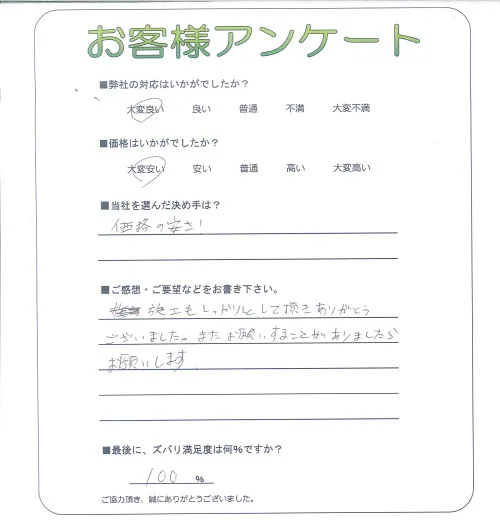 お客様アンケート
■弊社の対応はいかがでしたか？
大変良い 良い 普通 不満 大変不満
■価格はいかがでしたか？
大変安い 安い 普通 高い 大変高い
■当社を選んだ決め手は？
価格の安さ！
■ご感想・ご要望などをお書き下さい。
施工もしっかりとして頂きありがとう
ございました。またお願いすることがありましたら
お願いします
■最後に、ズバリ満足度は何%ですか？
100 %
ご協力頂き、誠にありがとうございました。